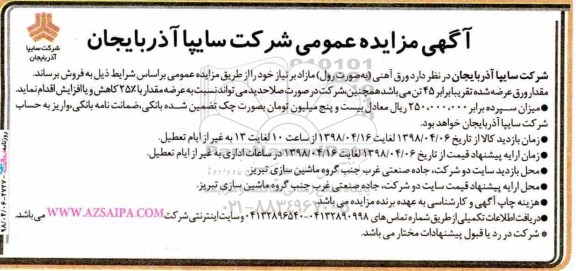 آگهی مزایده عمومی شرکت سایپا آذربایجان
شرکت سایپا
آذربایجان
شرکت سایپا آذربایجان در نظر دارد ورق آهنی (به صورت رول) مازاد بر نیاز خود را از طریق مزایده عمومی بر اساس شرایط ذیل به فروش برساند.
مقدار ورق عرضه شده تقریبا برابر ۴۵ تن می باشد همچنین شرکت در صورت صلاحدید می تواند نسبت به عرضه مقدار با ۲۵٪ کاهش و یا افزایش اقدام نماید.
● میزان سپرده برابر ۲۵۰،۰۰۰،۰۰۰ ریال معادل بیست و پنج میلیون تومان بصورت چک تضمین شده بانکی، ضمانت نامه بانکی، واریز به حساب
شرکت سایپا آذربایجان خواهد بود.
● زمان بازدید کالا از تاریخ ۱۳۹۸/۰۴/۰۶ لغایت ۱۳۹۸/۰۴/۱۶ از ساعت ۱۰ لغایت ۱۳ به غیر از ایام تعطیل.
● زمان ارایه پیشنهاد قیمت از تاریخ ۱۳۹۸/۰۴/۰۶ لغایت ۱۳۹۸/۰۴/۱۶ در ساعات اداری به غیر از ایام تعطیل.
● محل بازدید سایت دو شرکت، جاده صنعتی غرب جنب گروه ماشین سازی تبریز.
● محل ارایه پیشنهاد قیمت سایت دو شرکت، جاده صنعتی غرب جنب گروه ماشین سازی تبریز.
● هزینه چاپ آگهی و کارشناسی به عهده برنده مزایده می باشد.
● دریافت اطلاعات تکمیلی از طریق شماره تماس های ۰۴۱۳۲۸۹۰۹۹۸-۰۴۱۳۲۸۹۶۵۴۰ وسایت اینترنتی شرکت WWW.AZSAIPA.COM می باشد.
● شرکت در رد یا قبول پیشنهادات مختار می باشد.
۰۲۱-۸۸۳۴۹۶۷۰